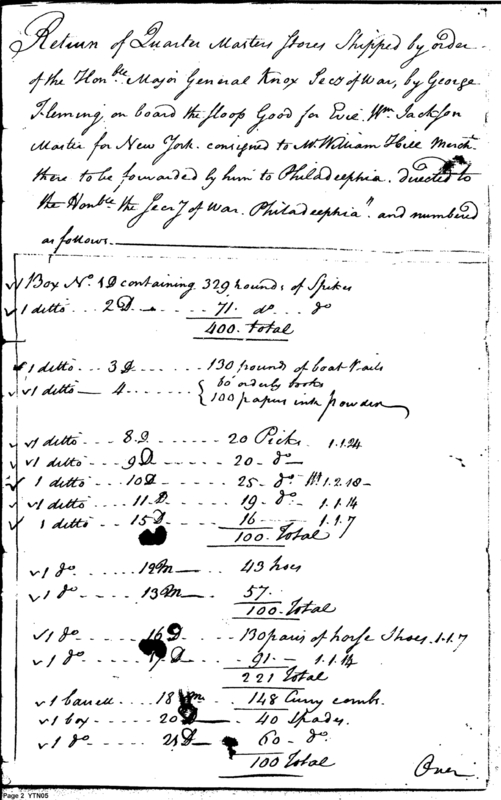 Return of Quarter Masters Stores Shipped by order
of the Honble Major General Knox Secy of War, by George
Fleming on board the Sloop Good for Evil Wm Jackson
Master for New York. consigned to Mr William Hill Mercht
there to be forwarded by him to Philadelphia. directed to
the Honble the Secry of War. Philadelphia" and numbered
as follows.
1 Box No. 1D containing 329 pounds of Spikes
1 ditto 2D 71. do do
400. total
1 ditto 3D 130 pounds of boat Nails
1 ditto 4 60 orderly books
100 papers ink powder
1 ditto 8D 20 Picks 1.1.24
1 ditto 9D 20 do
1 ditto 10D 25 do 1.2.18
1 ditto 11D 19 do 1.1.14
1 ditto 15D 16 1.1.7
100. Total
1 do 12M 43 hoes
1 do 13M 57.
100. Total
1 do 16D 130 pairs of horse Shoes. 1.1.7
1 do 17D 91. 1.1.14
221 Total
1 barrell 18 148 Curry combs.
1 box 20D 40 Spades.
1 do 21D 60 do
100 Total
Over
Page 2 YTN05